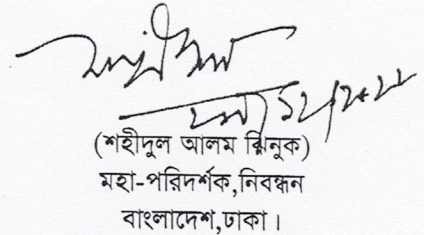 (শহীদুল আলম ঝিনুক)
মহা-পরিদর্শক,নিবন্ধন
বাংলাদেশ,ঢাকা।